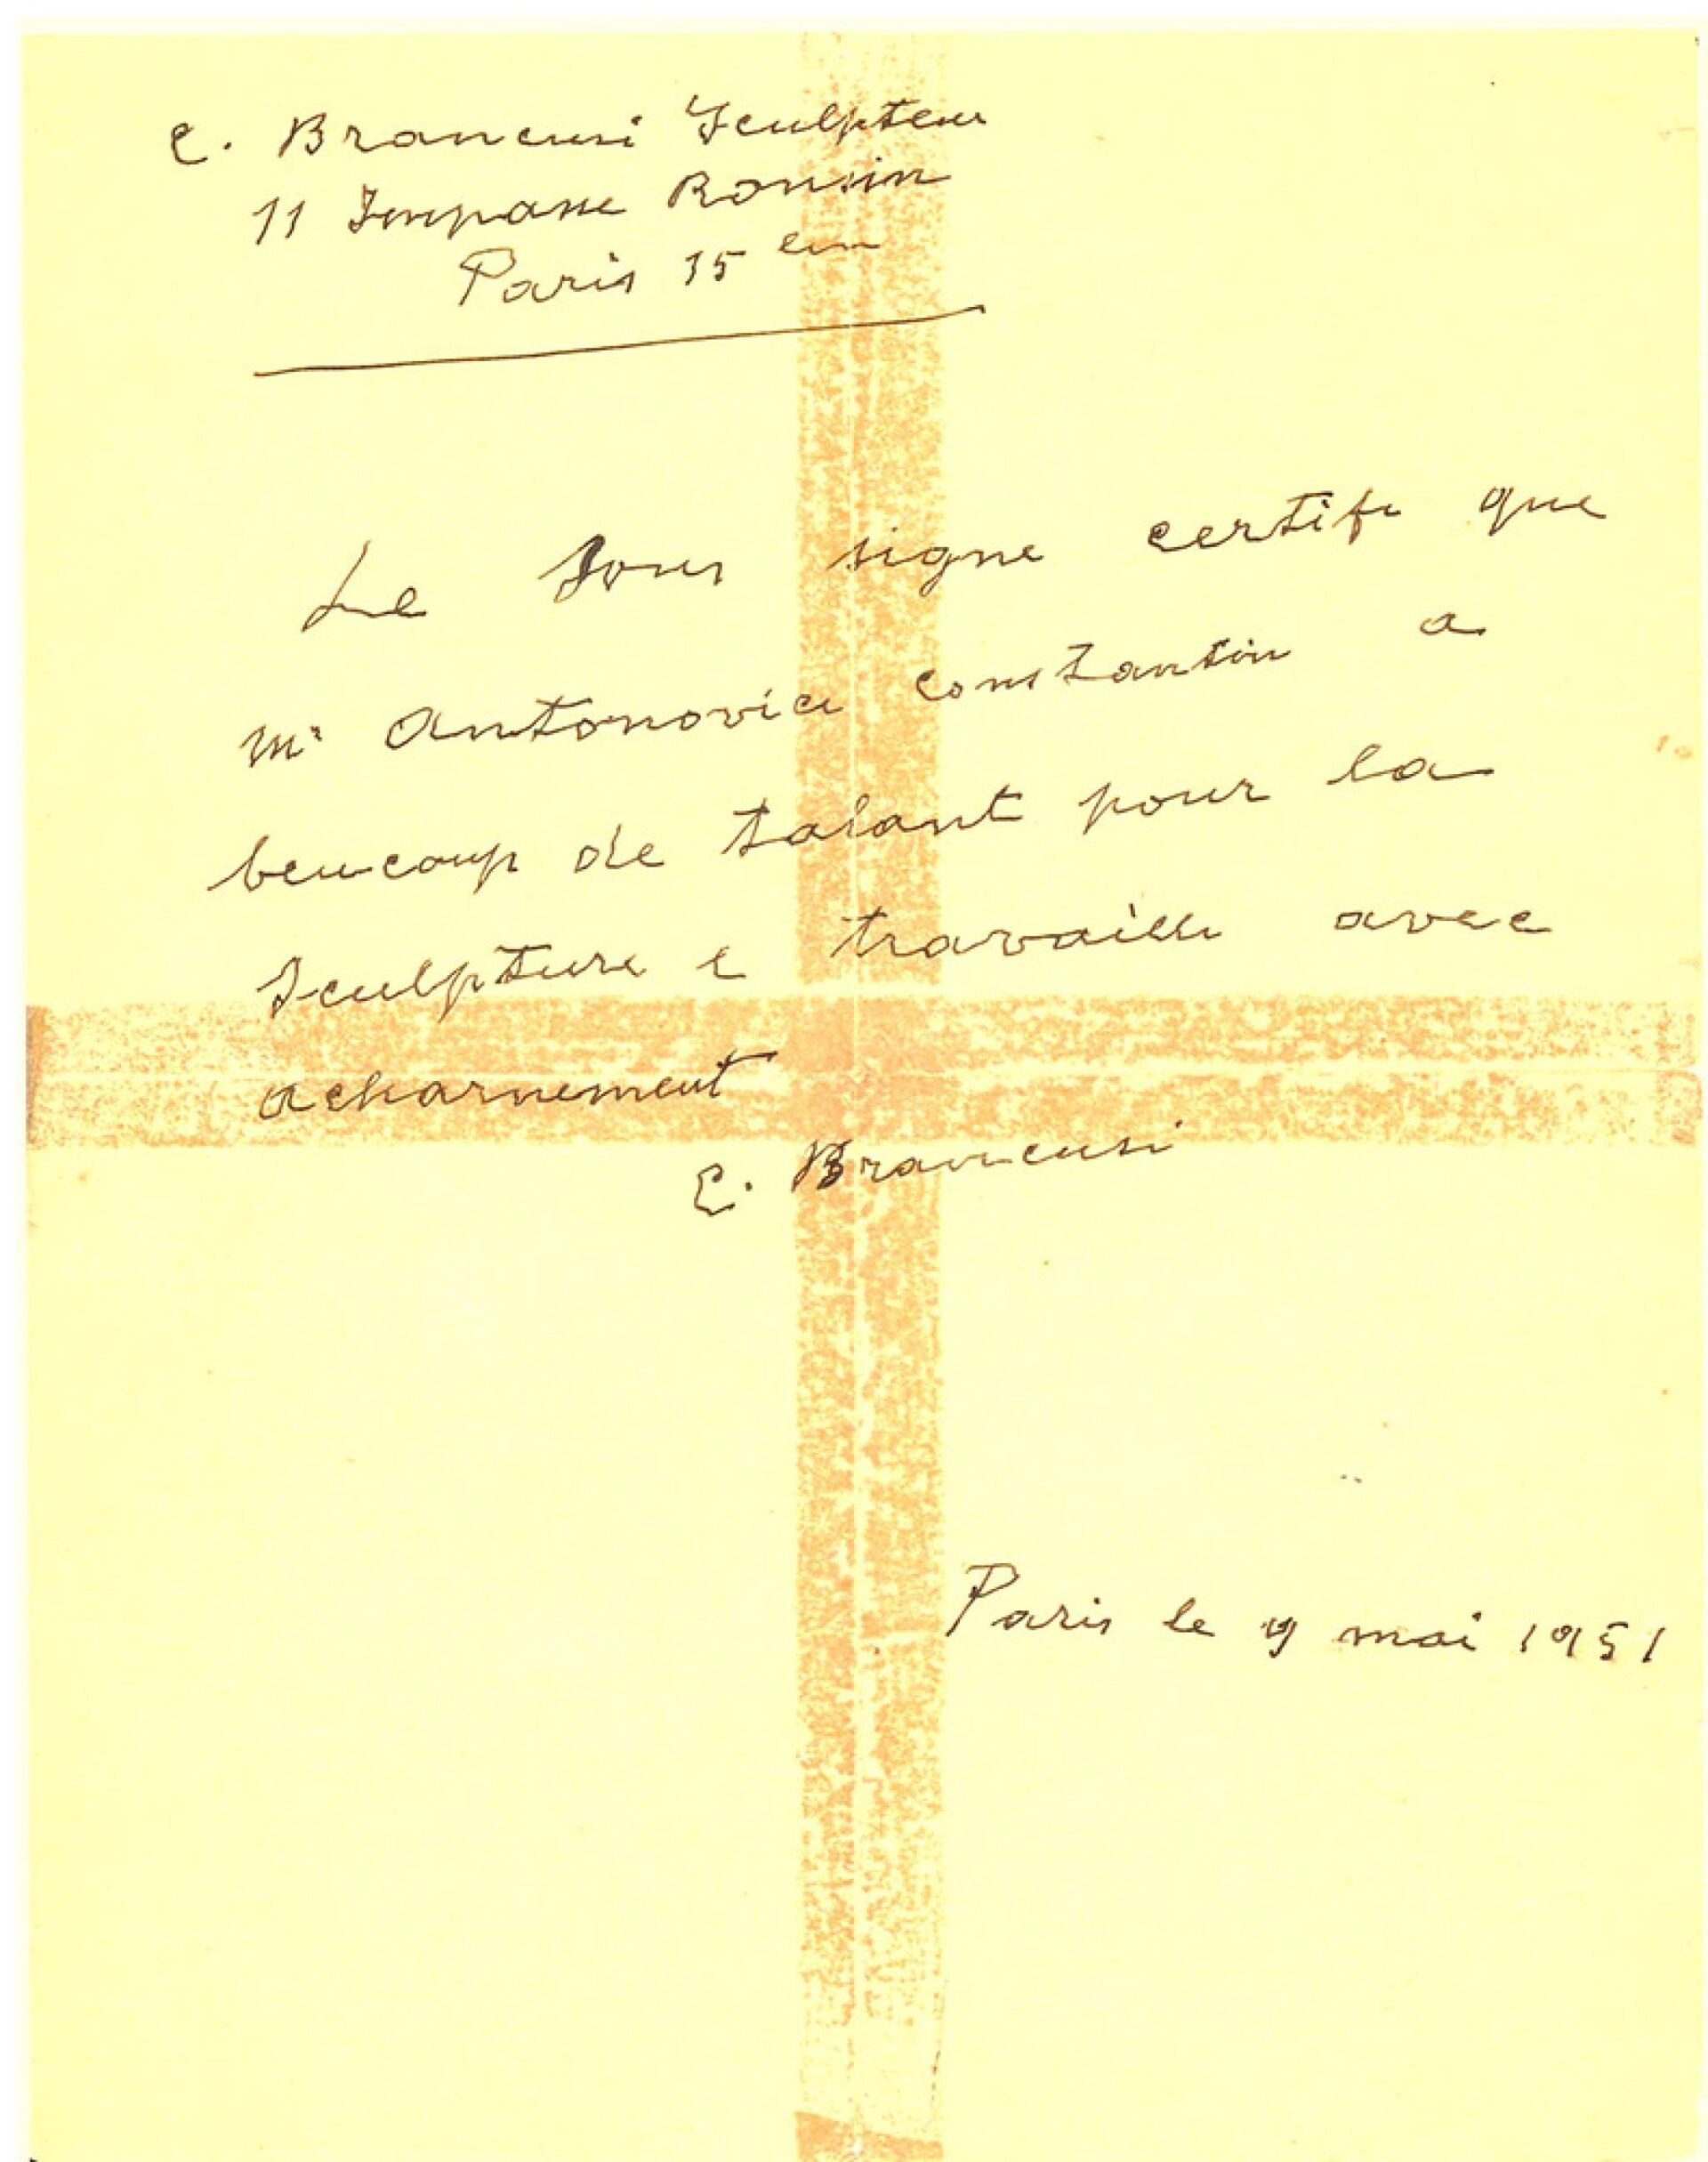 C. Brancusi Sculpteur
11 Impasse Ronsin
Paris 15 em
Le sous signe certifi que
Mr Antonovici constantin a
beucoup de talant pour la
Sculpture e travaille avec
acharnement
C. Brancusi
Paris le 9 mai 1951